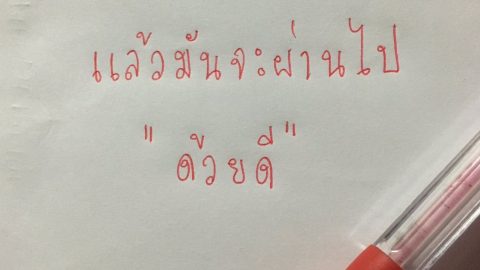 แล้วมันจะผ่านไป
"ด้วยดี"